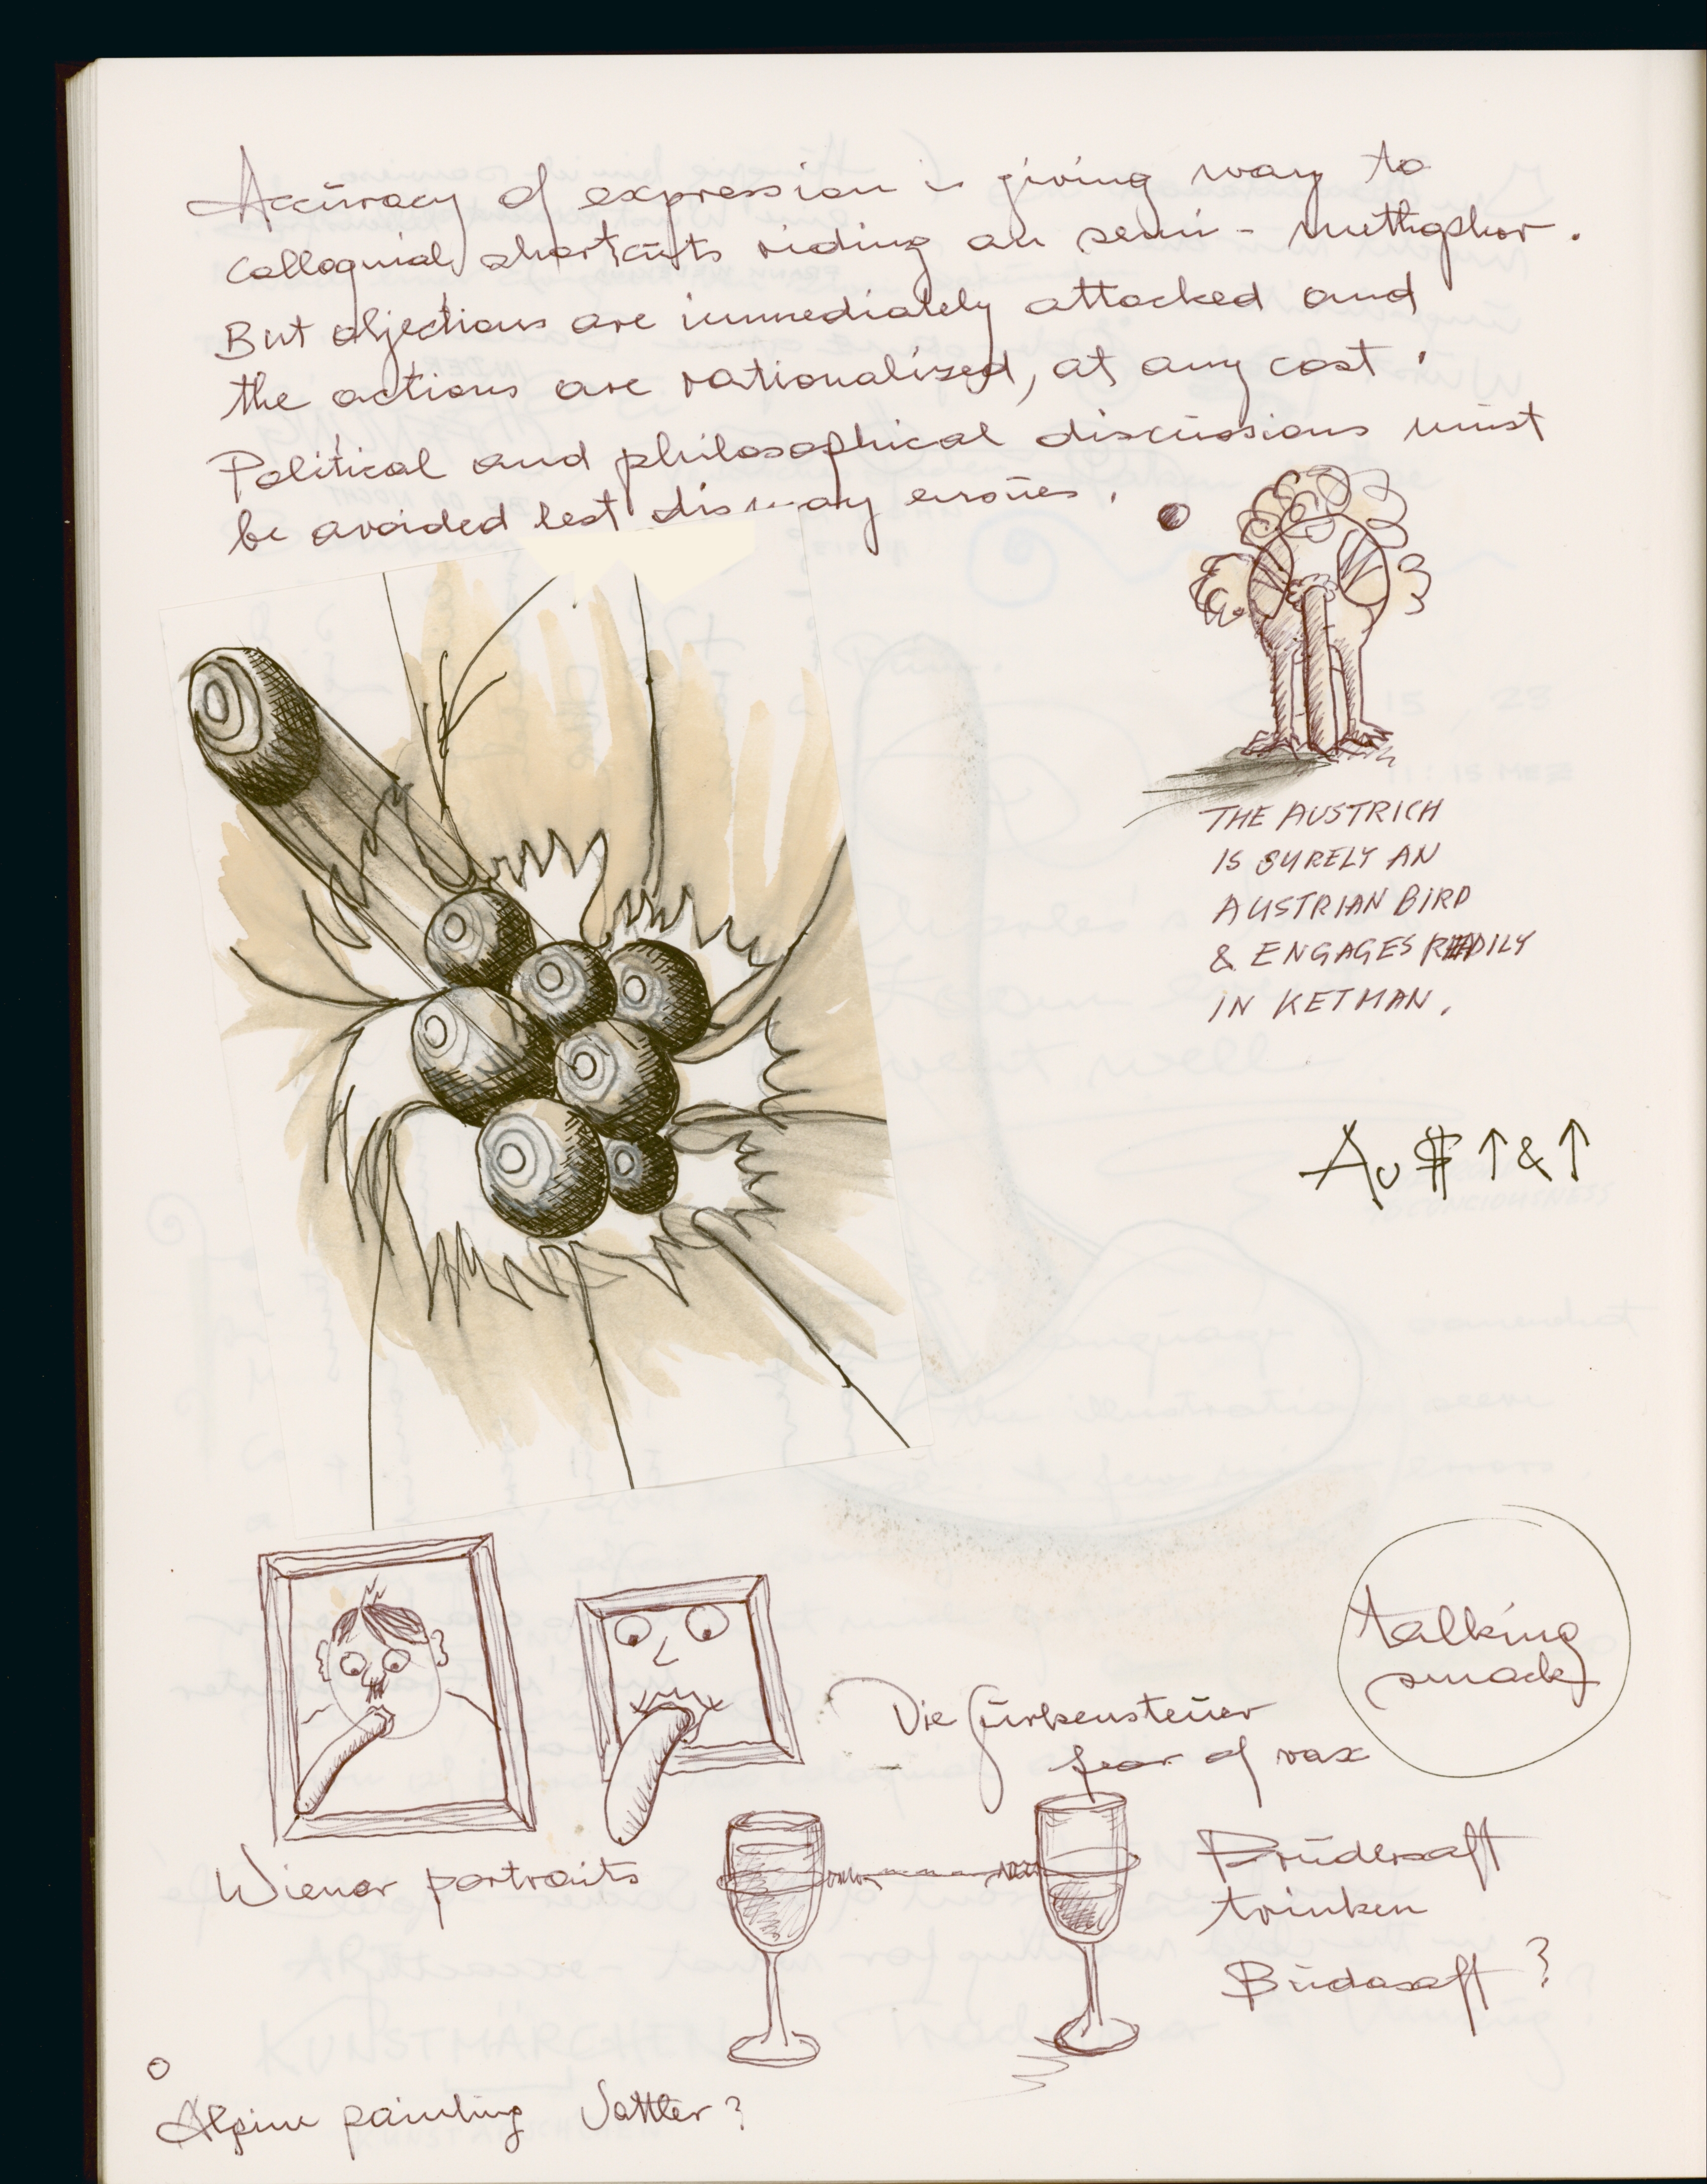 Accuracy of expression is giving way to
colloquial shortcuts riding on semi-methaphor.
But objections are immediately attacked and
the actions are rationalized, at any cost.
Political and philosophical discussions must
be avoided lest dismay ensues.
THE AUSTRICH
IS SURELY AN
AUSTRIAN BIRD
& ENGAGES READILY
IN KETMAN.
Au $ ↑ & ↑
talking
smack
Die Gurkensteuer
fear of vax
Wiener portraits
Brudersaft
trinken
Budasaft?
Alpine painting Sattler?